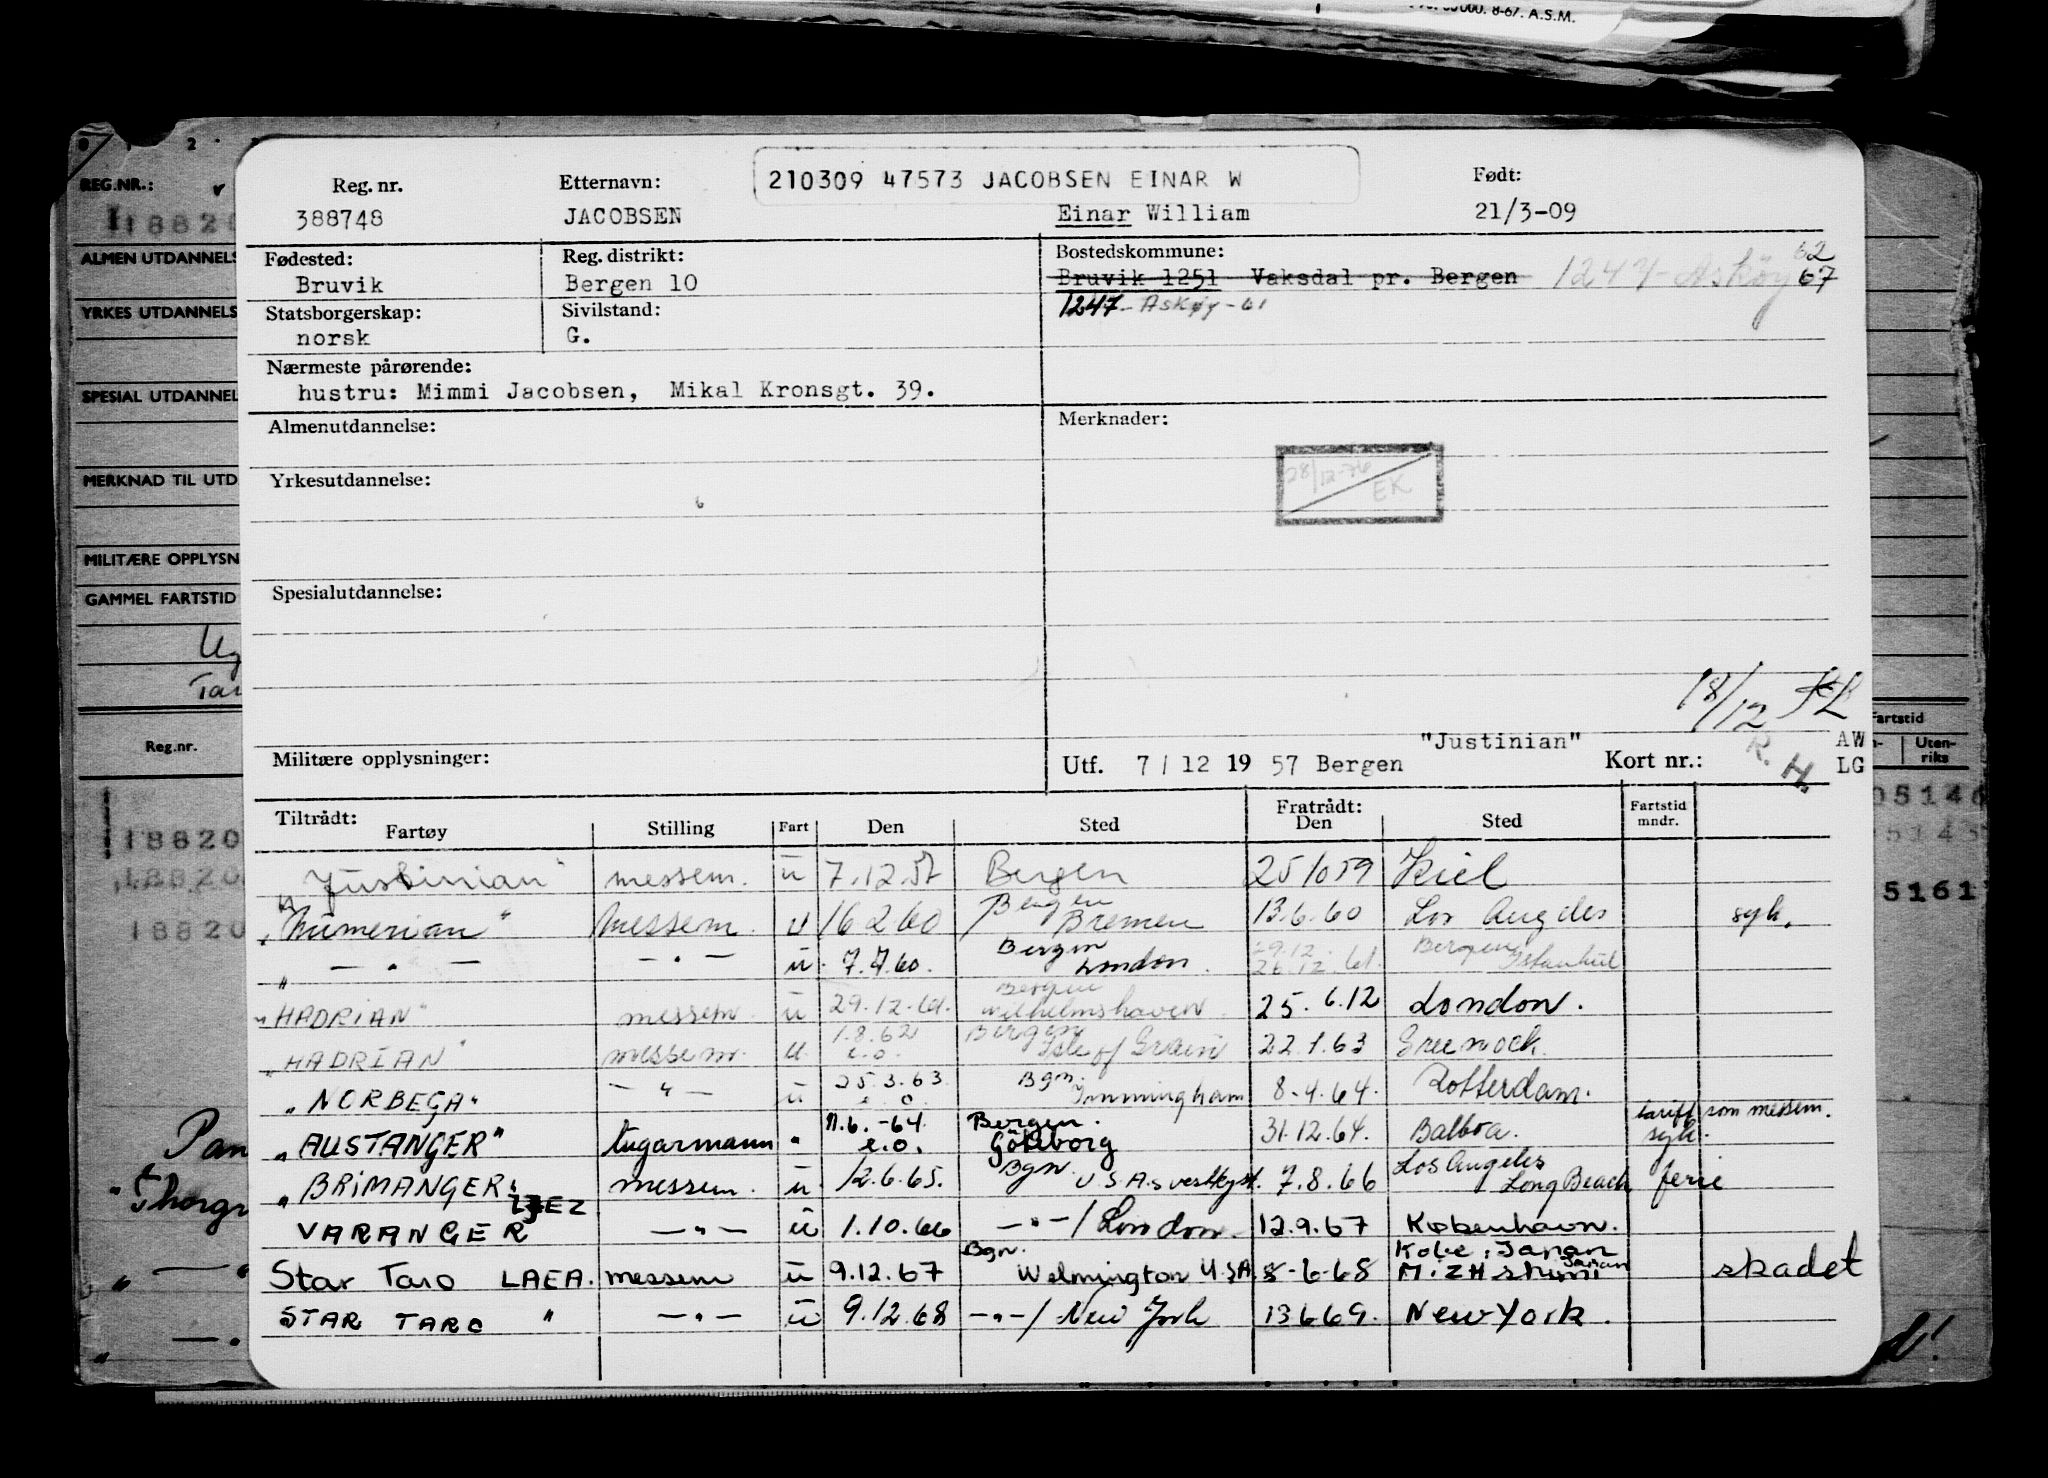 000. 8-67. A.S.M.
0 1 2
REG.NR.:
18820
ALMEN UTDANNELS
YRKES UTDANNELS
SPESIAL UTDANNEL
MERKNAD TIL UTD
MILITÆRE OPPLYSN
GAMMEL FARTSTID
Reg.nr.
18820
18820
18820
Pan
"Thorgr
210309 47573 JACOBSEN EINAR W
Reg. nr. Etternavn: Født:
388748 JACOBSEN Einar William 21/3-09
Fødested: Reg. distrikt: Bostedskommune:
Bruvik Bergen 10 Bruvik 1251 Vaksdal pr. Bergen 1247-Askøy 62 67
Statsborgerskap: Sivilstand: 1247-Askøy-61
norsk G.
Nærmeste pårørende:
hustru: Mimmi Jacobsen, Mikal Kronsgt. 39.
Almenutdannelse: Merknader:
28/12-76 EK
Yrkesutdannelse:
Spesialutdannelse:
18/12
"Justinian" R.H. AW
Militære opplysninger: Utf. 7/12 19 57 Bergen Kort nr.: LG
Fartstid
Uten-
riks
Tiltrådt: Fratrådt: Fartstid
Fartøy Stilling Fart Den Sted Den Sted mndr.
"Justinian" messem. ü 7.12.57 Bergen 25 10 59 Kiel
"Numerian" messem. ü 16 2 60 Bergen Bremen 13.6.60 Los Angeles syk.
" — " — — " — ü. 7.7.60. Bergen London. 29.12. 26.12 61. Bergen Istanbul
"HADRIAN" messem. ü 29.12.61. Bergen Wilhelmshaven. 25.6.12 London.
"HADRIAN" messem. ü. 1.8.62 e.o. Bergen Isle of Grain 22.1.63 Greenock.
"NORBEGA" — " — ü 25.3.63 e.o. Bgn. Immingham 8.4.64. Rotterdam.
"AUSTANGER" lugarmann " 11.6.-64. e.o. Bergen. Göteborg 31.12.64. Balboa. tariff som messem. syk.
"BRIMANGER" messem. ü 12.6.65. Bgn. U.S.A.s vestkyst. 7.8.66 Los Angeles Long Beach ferie
VARANGER LJEZ — " — ü 1.10.66 — " — / London. 12.9.67 København.
Star Taro LAEA. messem ü 9.12.67 Bgn. Welmington U.S.A. 8-6-68 Kobe, Japan skadet
STAR TARO " — " — ü 9.12.68 — " — / New York 13 6 69. New York.
05146
5161